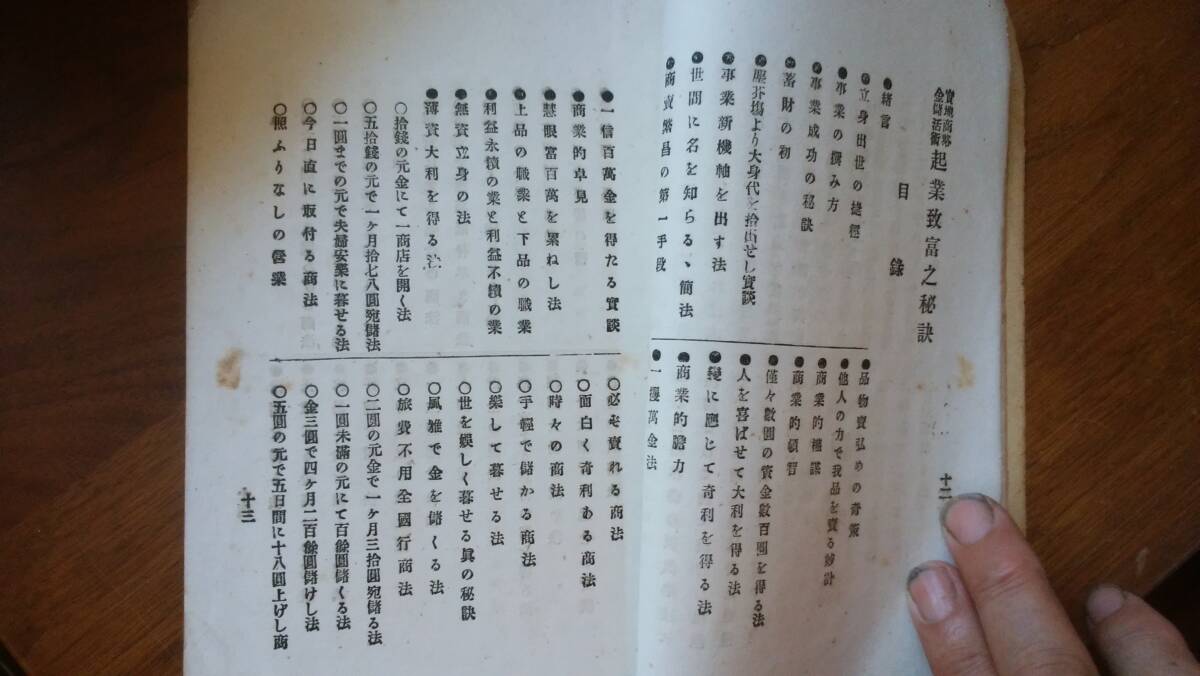 實地商略
金儲活術
起業致富之秘訣
目錄
●緒言
●立身出世の捷徑
●事業の撰み方
●事業成功の秘訣
●蓄財の初
●塵芥塲より大身代を拾出せし實談
●事業新機軸を出す法
●世間に名を知らるゝ簡法
●商賣繁昌の第一手段
●品物賣弘めの奇策
●他人の力で我品を賣る妙計
●商業的機謀
●商業的顧客
●僅々數圓の資金數百圓を得る法
●人を喜ばせて大利を得る法
●變に應じて奇利を得る法
●商業的膽力
●一攫萬金法
十二
●一信百萬金を得たる實談
●商業的卓見
●慧眼富百萬を累ねし法
●上品の職業と下品の職業
●利益永續の業と利益不續の業
●無資立身の法
●薄資大利を得る法
○拾錢の元金にて一商店を開く法
○五拾錢の元で一ヶ月拾七八圓宛儲法
○一圓までの元で夫婦安樂に暮せる法
○今日直に取付る商法
○照ふりなしの營業
○必ず賣れる商法
○面白く奇利ある商法
○時々の商法
○手輕で儲かる商法
○樂して暮せる法
○世を娯しく暮せる眞の秘訣
○風雅で金を儲くる法
○旅費不用全國行商法
○二圓の元金で一ヶ月三拾圓宛儲る法
○一圓未滿の元にて百餘圓儲くる法
○金三圓で四ヶ月二百餘圓儲けし法
○五圓の元で五日間に十八圓上げし商
十三